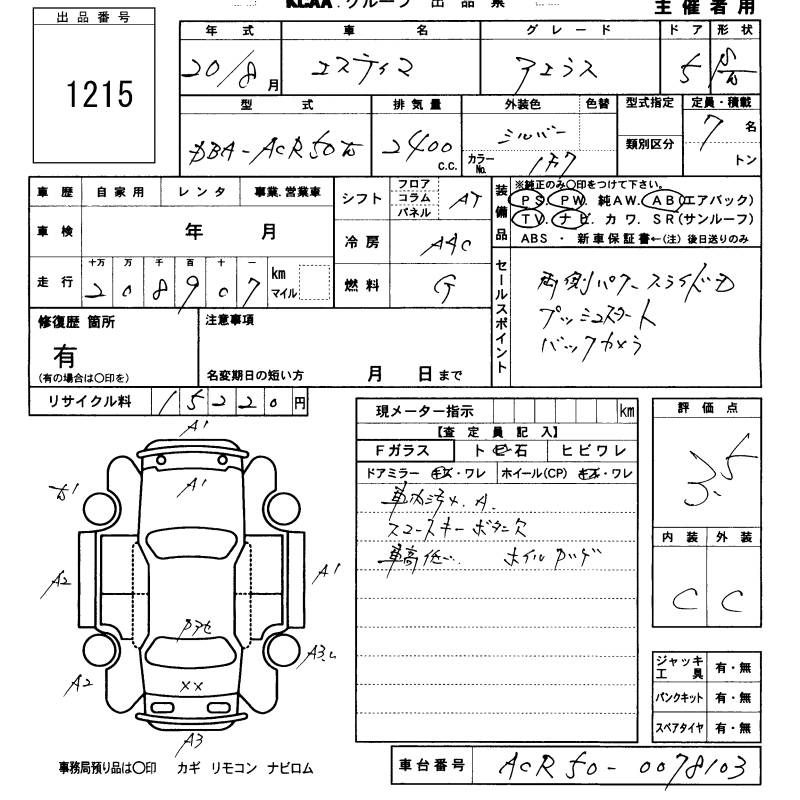 KCAA.グループ 出品票
主催者用
出品番号
1215
年式 車名 グレード ドア 形状
20/8月 エスティマ アエラス 5
型式 排気量 外装色 色替 型式指定 定員・積載
類別区分
DBA-ACR50W 2400 c.c. シルバー 7名
カラーNo. 1F7 トン
車歴 自家用 レンタ 事業.営業車
車検 年 月
走行 十万 万 千 百 十 一
208907 km マイル
シフト フロア コラム パネル AT
冷房 AAC
燃料 G
装備品
※純正のみ〇印をつけて下さい。
PS. PW. 純AW. AB(エアバック)
TV. ナビ. カワ. SR(サンルーフ)
ABS ・ 新車保証書←(注) 後日送りのみ
セールスポイント
両側パワースライドD
プッシュスタート
バックカメラ
修復歴 箇所
有
(有の場合は〇印を)
注意事項
名変期日の短い方 月 日まで
リサイクル料 15220円
現メーター指示 km
【査定員記入】
Fガラス ト ビ 石 ヒビワレ
ドアミラー キズ・ワレ ホイール(CP) キズ・ワレ
車内汚れ. A.
スコースキーボタン欠
車高低い. ホイルガリ
評価点
3.5
内装 外装
C C
A1
A1
A2
A1
A2
XX
A3
ジャッキ工具 有・無
パンクキット 有・無
スペアタイヤ 有・無
事務局預り品は〇印 カギ リモコン ナビロム
車台番号 ACR50-0078103